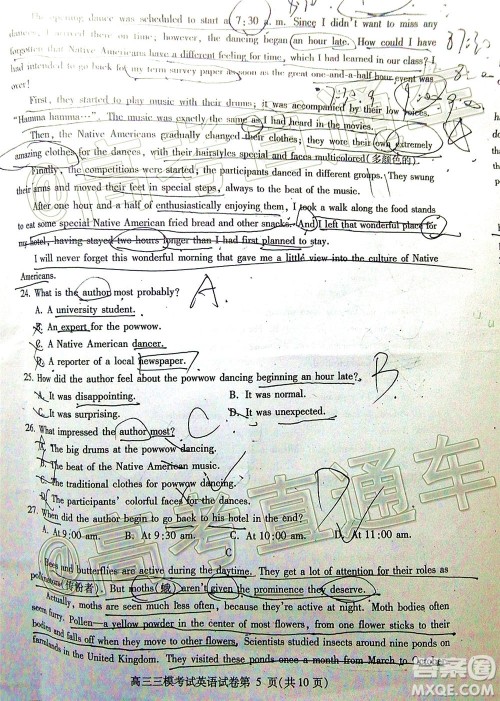 The opening dance was scheduled to start at 7:30 a. m. Since I didn't want to miss any
dances, I arrived on time; however, the dancing began an hour late. How could I have
forgotten that Native Americans have a different feeling for time, which I had learned in our class? I
had intended to go back to my term survey paper as soon as the great one-and-a-half-hour event was
over!
First, they started to play music with their drums; it was accompanied by their low voices.
"Hamma hamma…". The music was exactly the same as I had heard in the movies.
Then, the Native Americans gradually changed their clothes; they wore their own extremely
amazing clothes for the dances, with their hairstyles special and faces multicolored (多颜色的).
Finally, the competitions were started; the participants danced in different groups. They swung
their arms and moved their feet in special steps, always to the beat of the music.
After one hour and a half of enthusiastically enjoying them, I took a walk along the food stands
to eat some special Native American fried bread and other snacks. And I left that wonderful place for
my hotel, having stayed two hours longer than I had first planned to stay.
I will never forget this wonderful morning that gave me a little view into the culture of Native
Americans.
24. What is the author most probably? A.
A. A university student.
B. An expert for the powwow.
C. A Native American dancer.
D. A reporter of a local newspaper.
25. How did the author feel about the powwow dancing beginning an hour late? B
A. It was disappointing. B. It was normal.
C. It was surprising. D. It was unexpected.
26. What impressed the author most? C
A. The big drums at the powwow dancing.
B. The beat of the Native American music.
C. The traditional clothes for powwow dancing.
D. The participants' colorful faces for the dances.
27. When did the author begin to go back to his hotel in the end? D
A. At 9:00 am. B. At 9:30 am. C. At 10:00 am. D. At 11:00 am.
C
Bees and butterflies are active during the daytime. They get a lot of attention for their roles as
pollinators (传粉者). But moths (蛾) aren't given the prominence they deserve.
Actually, moths are seen much less often, because they're most active at night. Moth bodies often
seem furry. Pollen—a yellow powder in the center of most flowers, from one flower sticks to their
bodies and falls down when they visit other flowers. Scientists studied insects around nine ponds on
farmlands in the United Kingdom. They visited these ponds once a month from March to October
高三三模考试英语试卷第 5 页(共 10 页)
@高考直通车
@高考直通车
答案圈
MXQE.COM